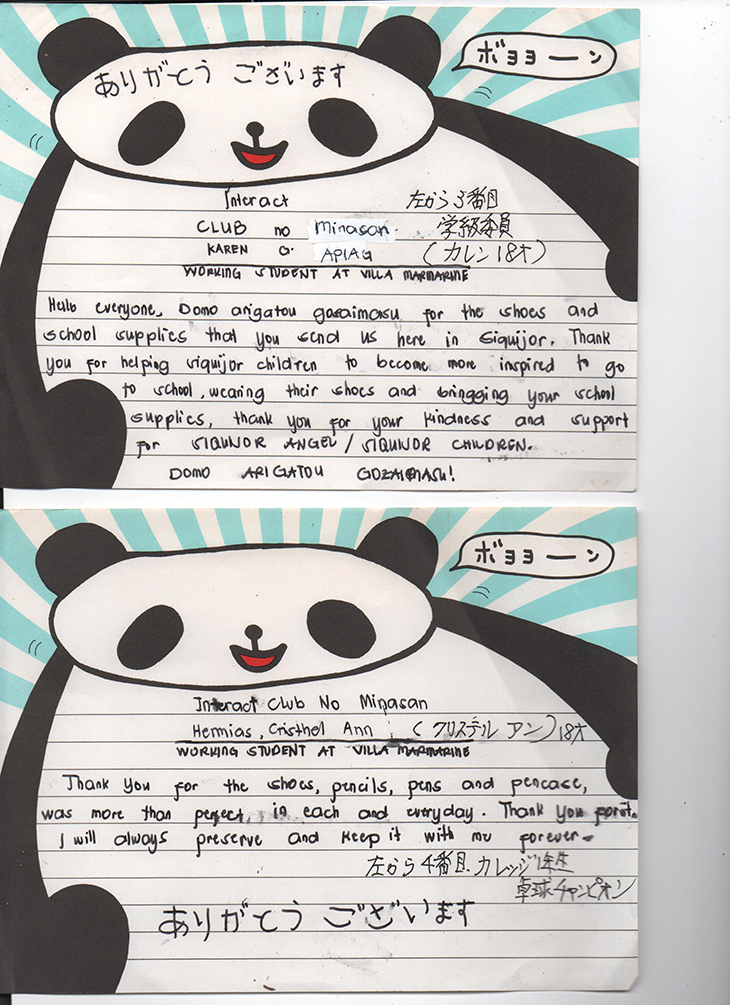 ありがとう ございます
ボヨヨーン
Interact
左から3番目
CLUB no Minasan.
学級委員
KAREN O. APIAG
(カレン 18才)
WORKING STUDENT AT VILLA MARMARINE
Hello everyone, Domo arigatou gosaimasu for the shoes and
school supplies that you send us here in Siquijor. Thank
you for helping siquijor children to become more inspired to go
to school, wearing their shoes and bringging your school
supplies, thank you for your kindness and support
for SIQUIJOR ANGEL / SIQUIJOR CHILDREN.
DOMO ARIGATOU GOZAIMASU!
ボヨヨーン
Interact Club No Minasan
Hermias, Cristhel Ann (クリステル アン) 18才
WORKING STUDENT AT VILLA MARMARINE
Thank You for the shoes, pencils, pens and pencase,
was more than perfect, in each and everyday. Thank You forit.
I will always preserve and keep it with me forever.
左から4番目. カレッジ1年生
卓球チャンピオン
ありがとう ございます